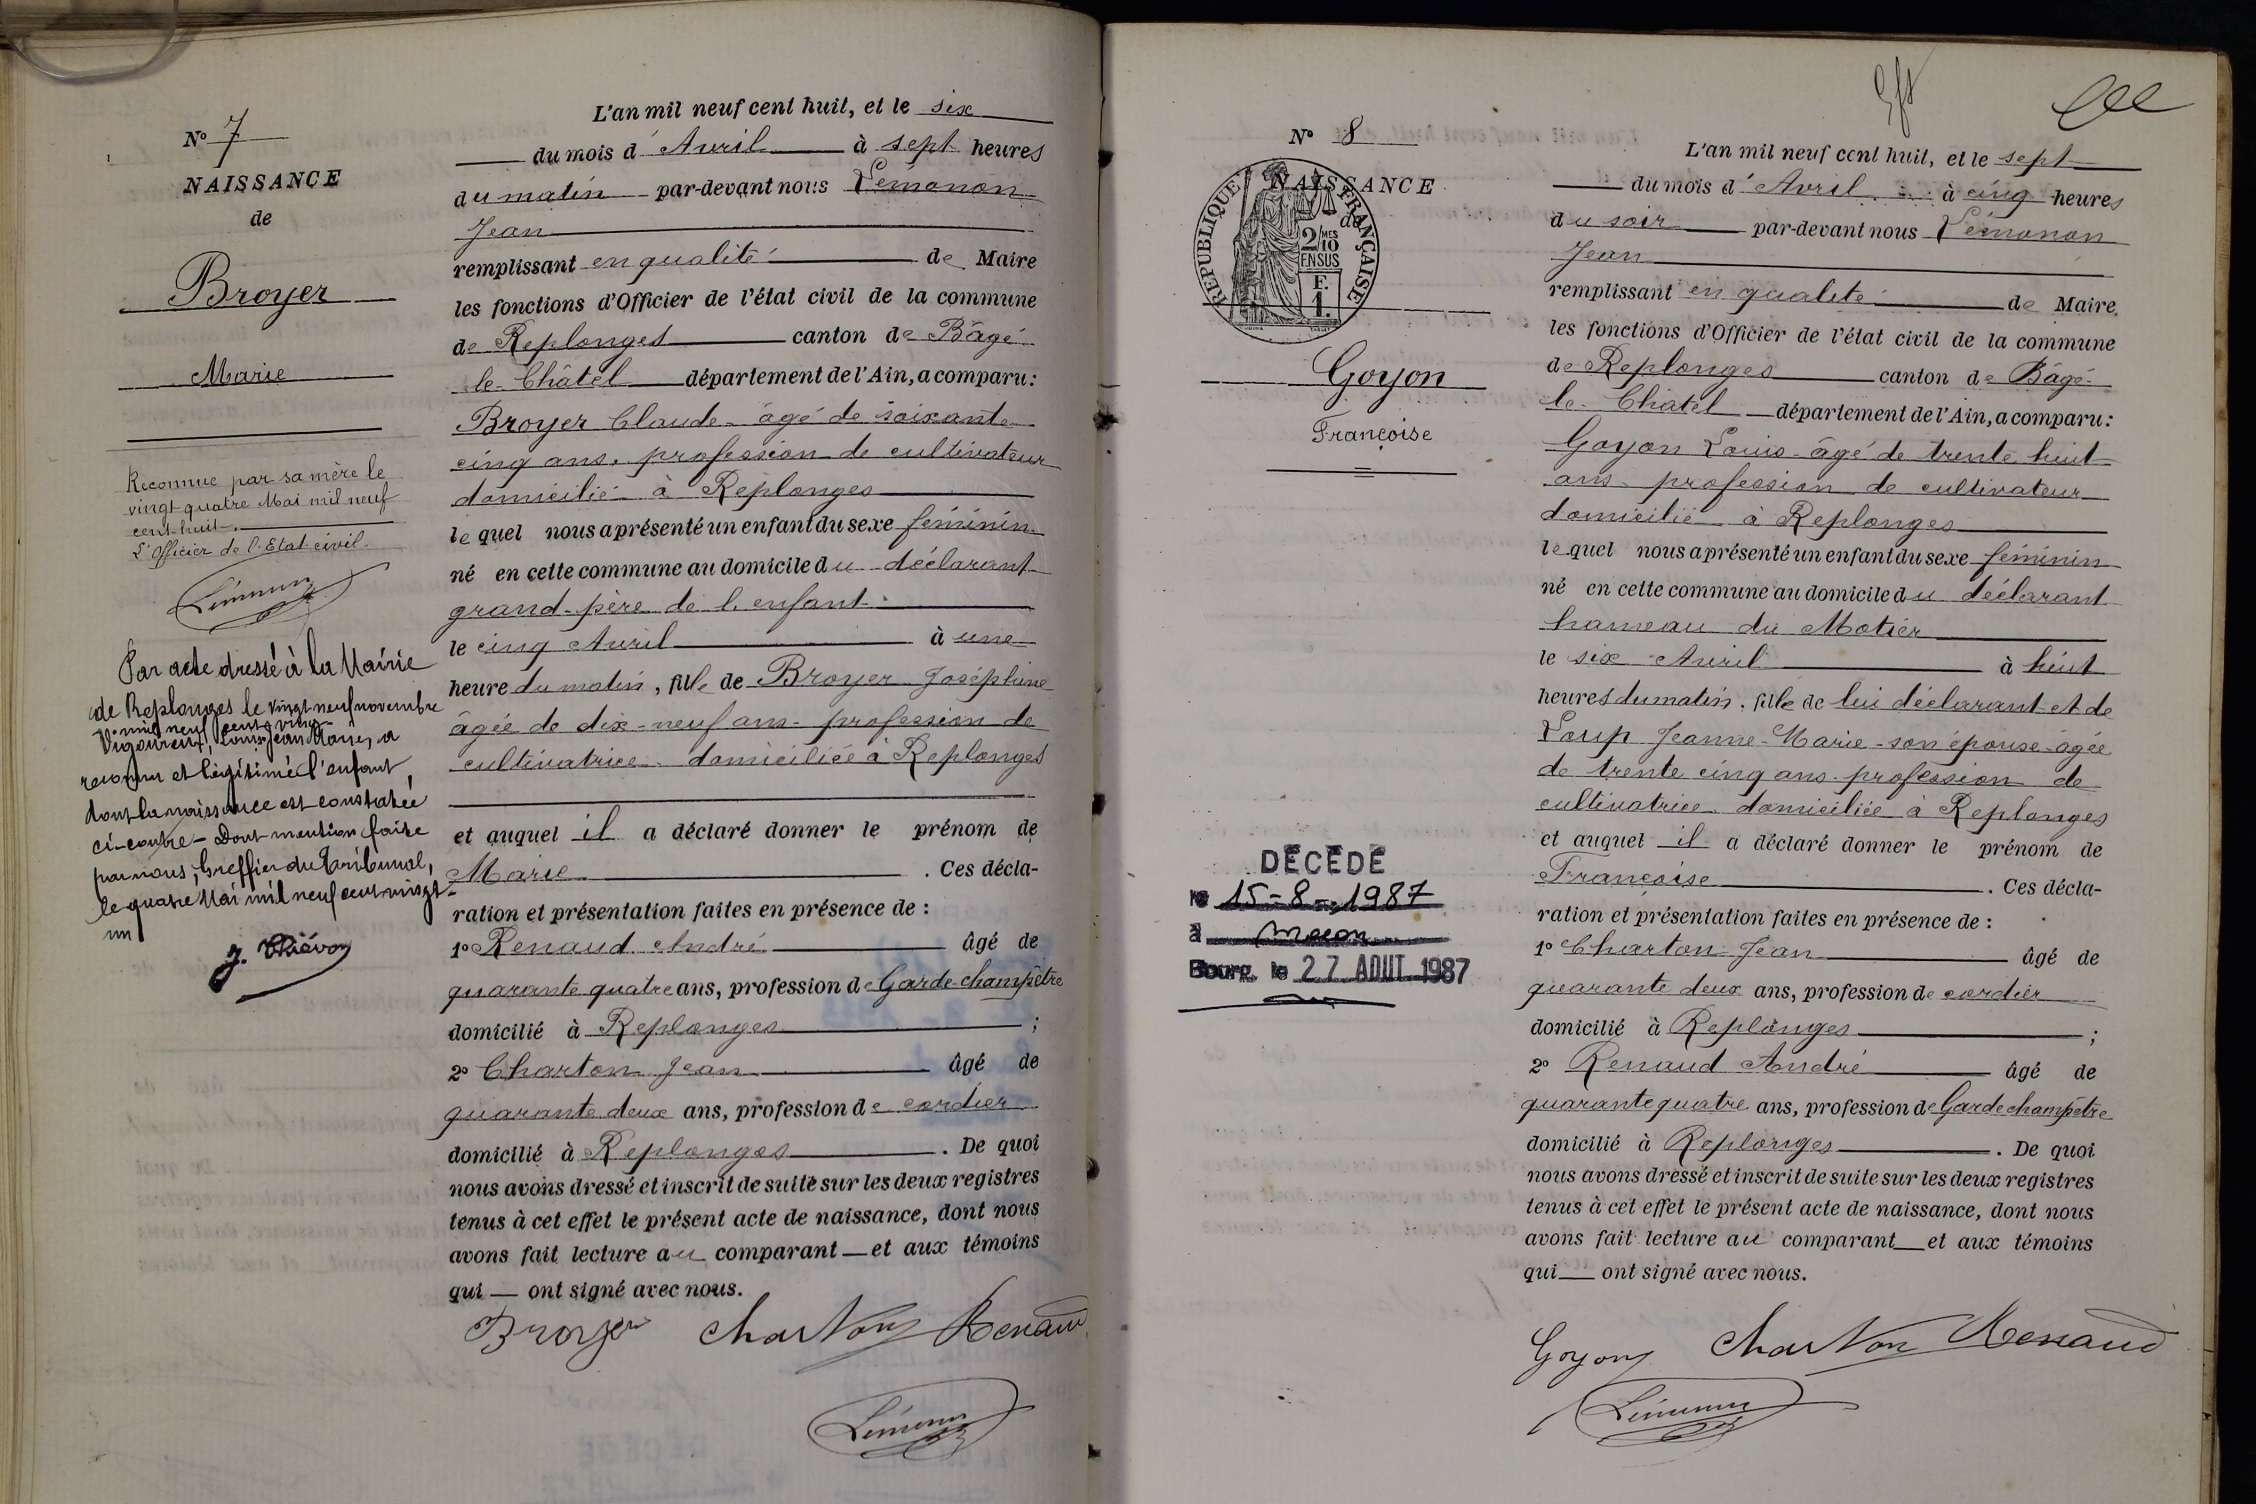 N° 7
NAISSANCE
de
Broyer
Marie
Reconnue par sa mère le
vingt quatre Mai mil neuf
cent huit.
L'Officier de l'Etat civil.
Par acte dressé à la Mairie
de Replonges le vingt neuf novembre
mil neuf cent vingt
Vigoureux, Louis Jean Marie, a
reconnu et légitimé l'enfant,
dont la naissance est constatée
ci-contre - Dont mention faite
par nous, Greffier du Tribunal,
le quatre Mai mil neuf cent vingt-
un
L'an mil neuf cent huit, et le six
du mois d'Avril à sept heures
du matin par-devant nous Lémonon
Jean
remplissant en qualité de Maire
les fonctions d'Officier de l'état civil de la commune
de Replonges canton de Bâgé
le-Châtel département de l'Ain, a comparu :
Broyer Claude âgé de soixante
cinq ans, profession de cultivateur
domicilié à Replonges
lequel nous a présenté un enfant du sexe féminin
né en cette commune au domicile du déclarant
grand-père de l'enfant
le cinq Avril à une
heure du matin, fille de Broyer Joséphine
âgée de dix-neuf ans profession de
cultivatrice domiciliée à Replonges
et auquel il a déclaré donner le prénom de
Marie . Ces décla-
ration et présentation faites en présence de :
1° Renaud André âgé de
quarante quatre ans, profession de Garde-champêtre
domicilié à Replonges ;
2° Charton Jean âgé de
quarante deux ans, profession de cordier
domicilié à Replonges . De quoi
nous avons dressé et inscrit de suite sur les deux registres
tenus à cet effet le présent acte de naissance, dont nous
avons fait lecture au comparant et aux témoins
qui ont signé avec nous.
Broyer Charton Renaud
Lémonon
N° 8
NAISSANCE
de
REPUBLIQUE FRANÇAISE
2/10 MES
EN SUS
F.
1.
Goyon
Françoise
DÉCÉDÉ
le 15-8-1987
à Macon
Bourg, le 27 AOUT 1987
L'an mil neuf cent huit, et le sept
du mois d'Avril à cinq heures
du soir par-devant nous Lémonon
Jean
remplissant en qualité de Maire
les fonctions d'Officier de l'état civil de la commune
de Replonges canton de Bâgé-
le-Châtel département de l'Ain, a comparu :
Goyon Louis âgé de trente huit
ans profession de cultivateur
domicilié à Replonges
lequel nous a présenté un enfant du sexe féminin
né en cette commune au domicile du déclarant
hameau du Motier
le six Avril à huit
heures du matin, fille de lui déclarant et de
Loup Jeanne-Marie son épouse âgée
de trente cinq ans profession de
cultivatrice domiciliée à Replonges
et auquel il a déclaré donner le prénom de
Françoise . Ces décla-
ration et présentation faites en présence de :
1° Charton Jean âgé de
quarante deux ans, profession de cordier
domicilié à Replonges ;
2° Renaud André âgé de
quarante quatre ans, profession de Garde champêtre
domicilié à Replonges . De quoi
nous avons dressé et inscrit de suite sur les deux registres
tenus à cet effet le présent acte de naissance, dont nous
avons fait lecture au comparant et aux témoins
qui ont signé avec nous.
Goyon Charton Renaud
Lémonon